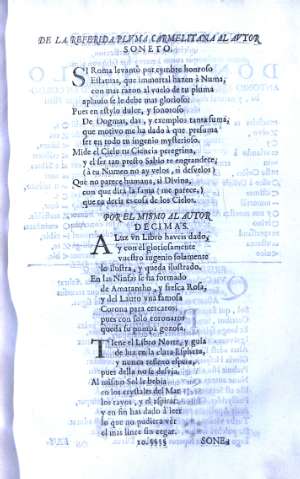 DE LA REFERIDA PLVMA CARMELITANA AL AVTOR
SONETO.
SI Roma levantò por
Estatuas, que inmortal hazen à Numa,
con mas razon al vuelo de tu pluma
aplauso se le debe mas glorioso:
Pues en estylo dulce, y sonoroso
De Dogmas, das, y exemplos tanta suma,
que motivo me ha dado à que presuma
ser en todo tu ingenio mysterioso.
Mide el Cielo tu Ciencia peregrina,
y el ser tan presto Sabio te engrandece,
(à tu Numen no ay velos, ni desvelos)
Que no parece humana, si Divina,
con que dirà la fama (me parece,)
que tu es cosa de los Cielos.
POR EL MISMO AL AUTOR
DECIMAS.
A Luz un Libro haveis dado,
y con èl gloriosamente
vuestro ingenio solamente
lo ilustra, y queda ilustrado.
En las Ninfas se ha formado
de Amarantho, y fresca Rosa,
y del Lauro una famosa
Corona para cercaros;
pues con solo coronaros
queda su pompa gozosa.
TIene el Libro Norte, y guia
de luz en la clara Esphera,
y nunca
pues della no se desvia.
Al mismo Sol le bebia
en los crystales del Mar
los rayos, y el
y en fin has dado à leer
lo que no pudiera vèr
el mas lince sin cegar.
SONE-